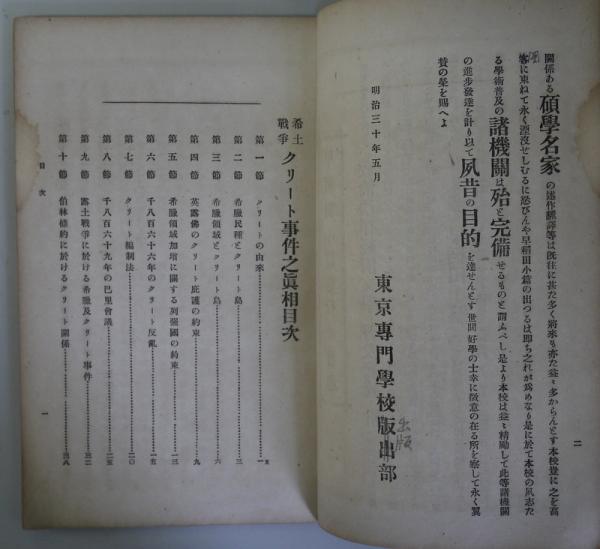 關係ある碩學名家の述作飜譯等は既往に甚だ多く將來も亦た益〻多からんとす本校豈に之を高
閣に束ねて永く湮沒せしむるに忍びんや早稻田小篇の出づるは即ち之れが爲めなり是に於て本校の夙志た
る學術普及の諸機關は殆ど完備せるものと謂ふべし是より本校は益〻精勵して此等諸機關
の進步發達を計り以て夙昔の目的を達せんとす世間好學の士幸に微意の在る所を察して永く翼
賛の榮を賜へよ
明治三十年五月
東京專門學校版出部
出版
二
希土戰爭クリート事件之眞相目次
第一節 クリートの由來……一
第二節 希臘民種とクリート島……三
第三節 希臘領域とクリート島……六
第四節 英露佛のクリート庇護の約束……九
第五節 希臘領域加增に關する列強國の約束……一三
第六節 千八百六十六年のクリート反亂……一五
第七節 クリート編制法……二〇
第八節 千八百六十九年の巴里會議……二三
第九節 露土戰爭に於ける希臘及クリート事件……三二
第十節 伯林條約に於けるクリート關係……三八
目次
一